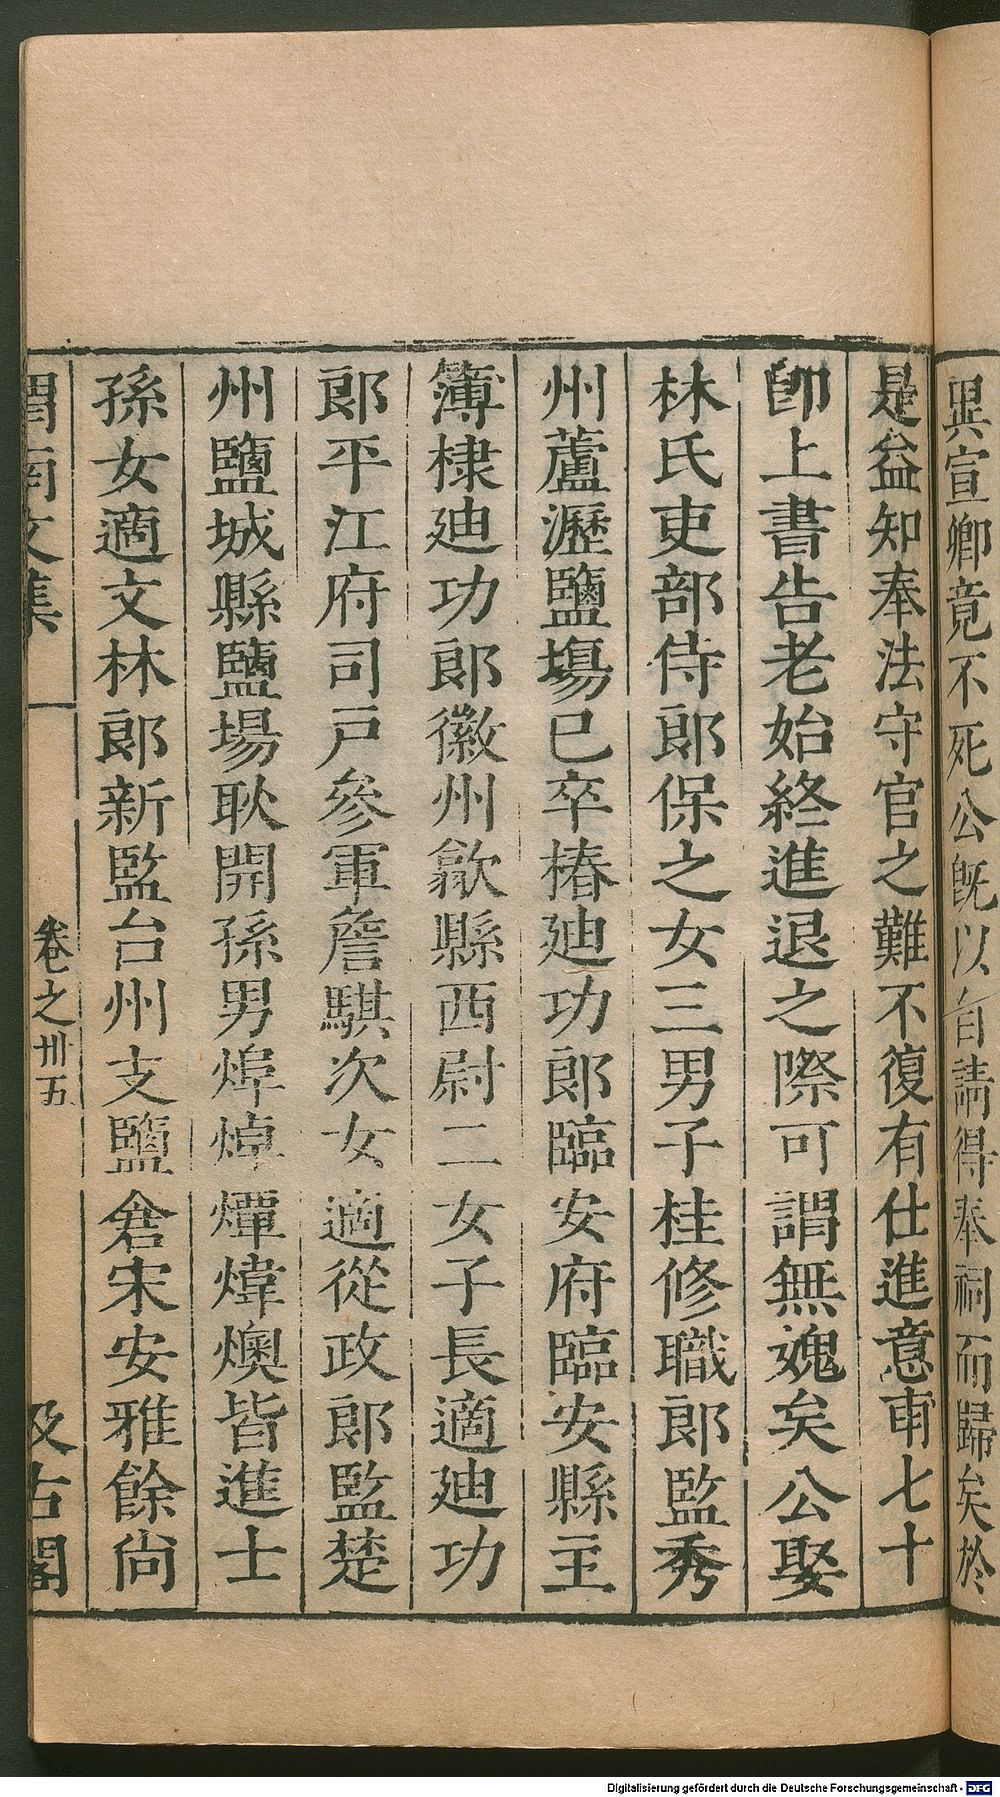 異宣卿竟不死公旣以自請得奉祠而歸矣於
是益知奉法守官之難不復有仕進意甫七十
卽上書告老始終進退之際可謂無媿矣公娶
林氏吏部侍郎保之女三男子桂修職郎監秀
州蘆瀝鹽場已卒椿廸功郎臨安府臨安縣主
簿棣廸功郎徽州歙縣西尉二女子長適廸功
郎平江府司戸參軍詹騏次女適從政郎監楚
州鹽城縣鹽場耿開孫男焠焯燂煒燠皆進士
孫女適文林郎新監台州支鹽倉宋安雅餘尙
渭南文集
卷之卅五
汲古閣
Digitalisierung gefördert durch die Deutsche Forschungsgemeinschaft - DFG